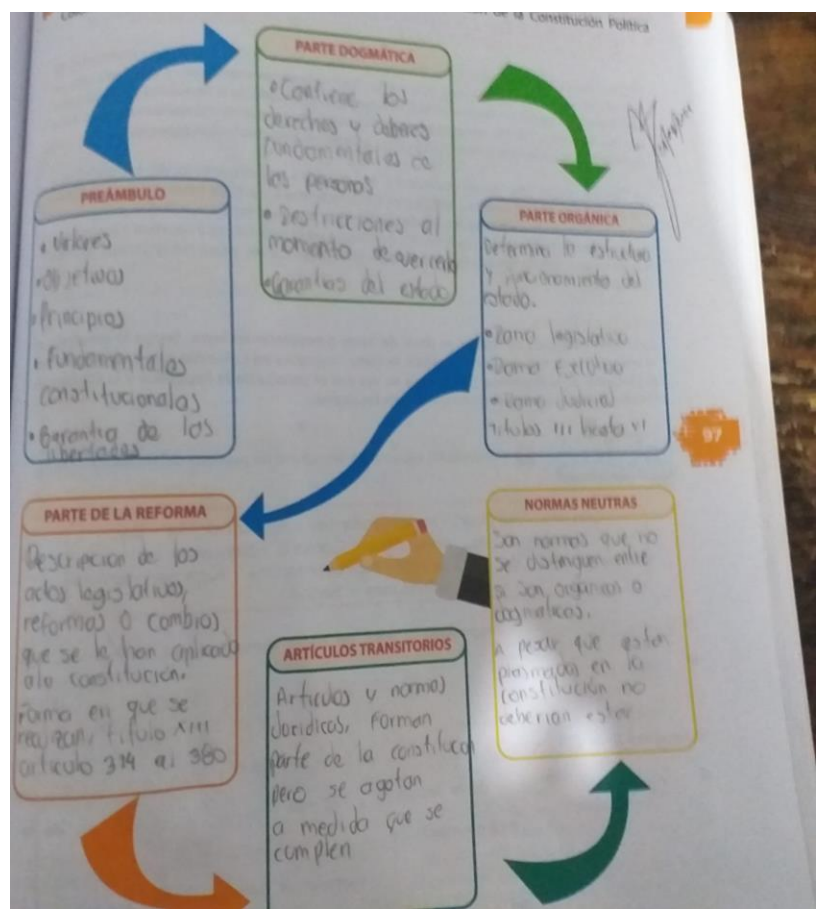 de la Constitución Política
PARTE DOGMÁTICA
• Contiene los
derechos y deberes
fundamentales de
las personas
• Restricciones al
momento de
• Garantías del estado
PREÁMBULO
• Valores
• objetivos
• Principios
• fundamentales
constitucionales
• Garantia de las
libertades
PARTE ORGÁNICA
Determina la estructura
y funcionamiento del
estado.
• Rama legislativa
• Rama
• Rama Judicial
titulos III hasta VI
97
PARTE DE LA REFORMA
Descripcion de los
actos legislativos,
reformas o cambios
que se le han aplicado
a la constitución.
Forma en que se
titulo XIII
articulo al 380
NORMAS NEUTRAS
Son normas que no
se distinguen entre
si son, organicas o
dogmaticas.
A pesar que estan
plasmadas en la
constitución no
deberian estar
ARTÍCULOS TRANSITORIOS
Articulos y normas
Juridicas, Forman
parte de la
pero se agotan
a medida que se
cumplen